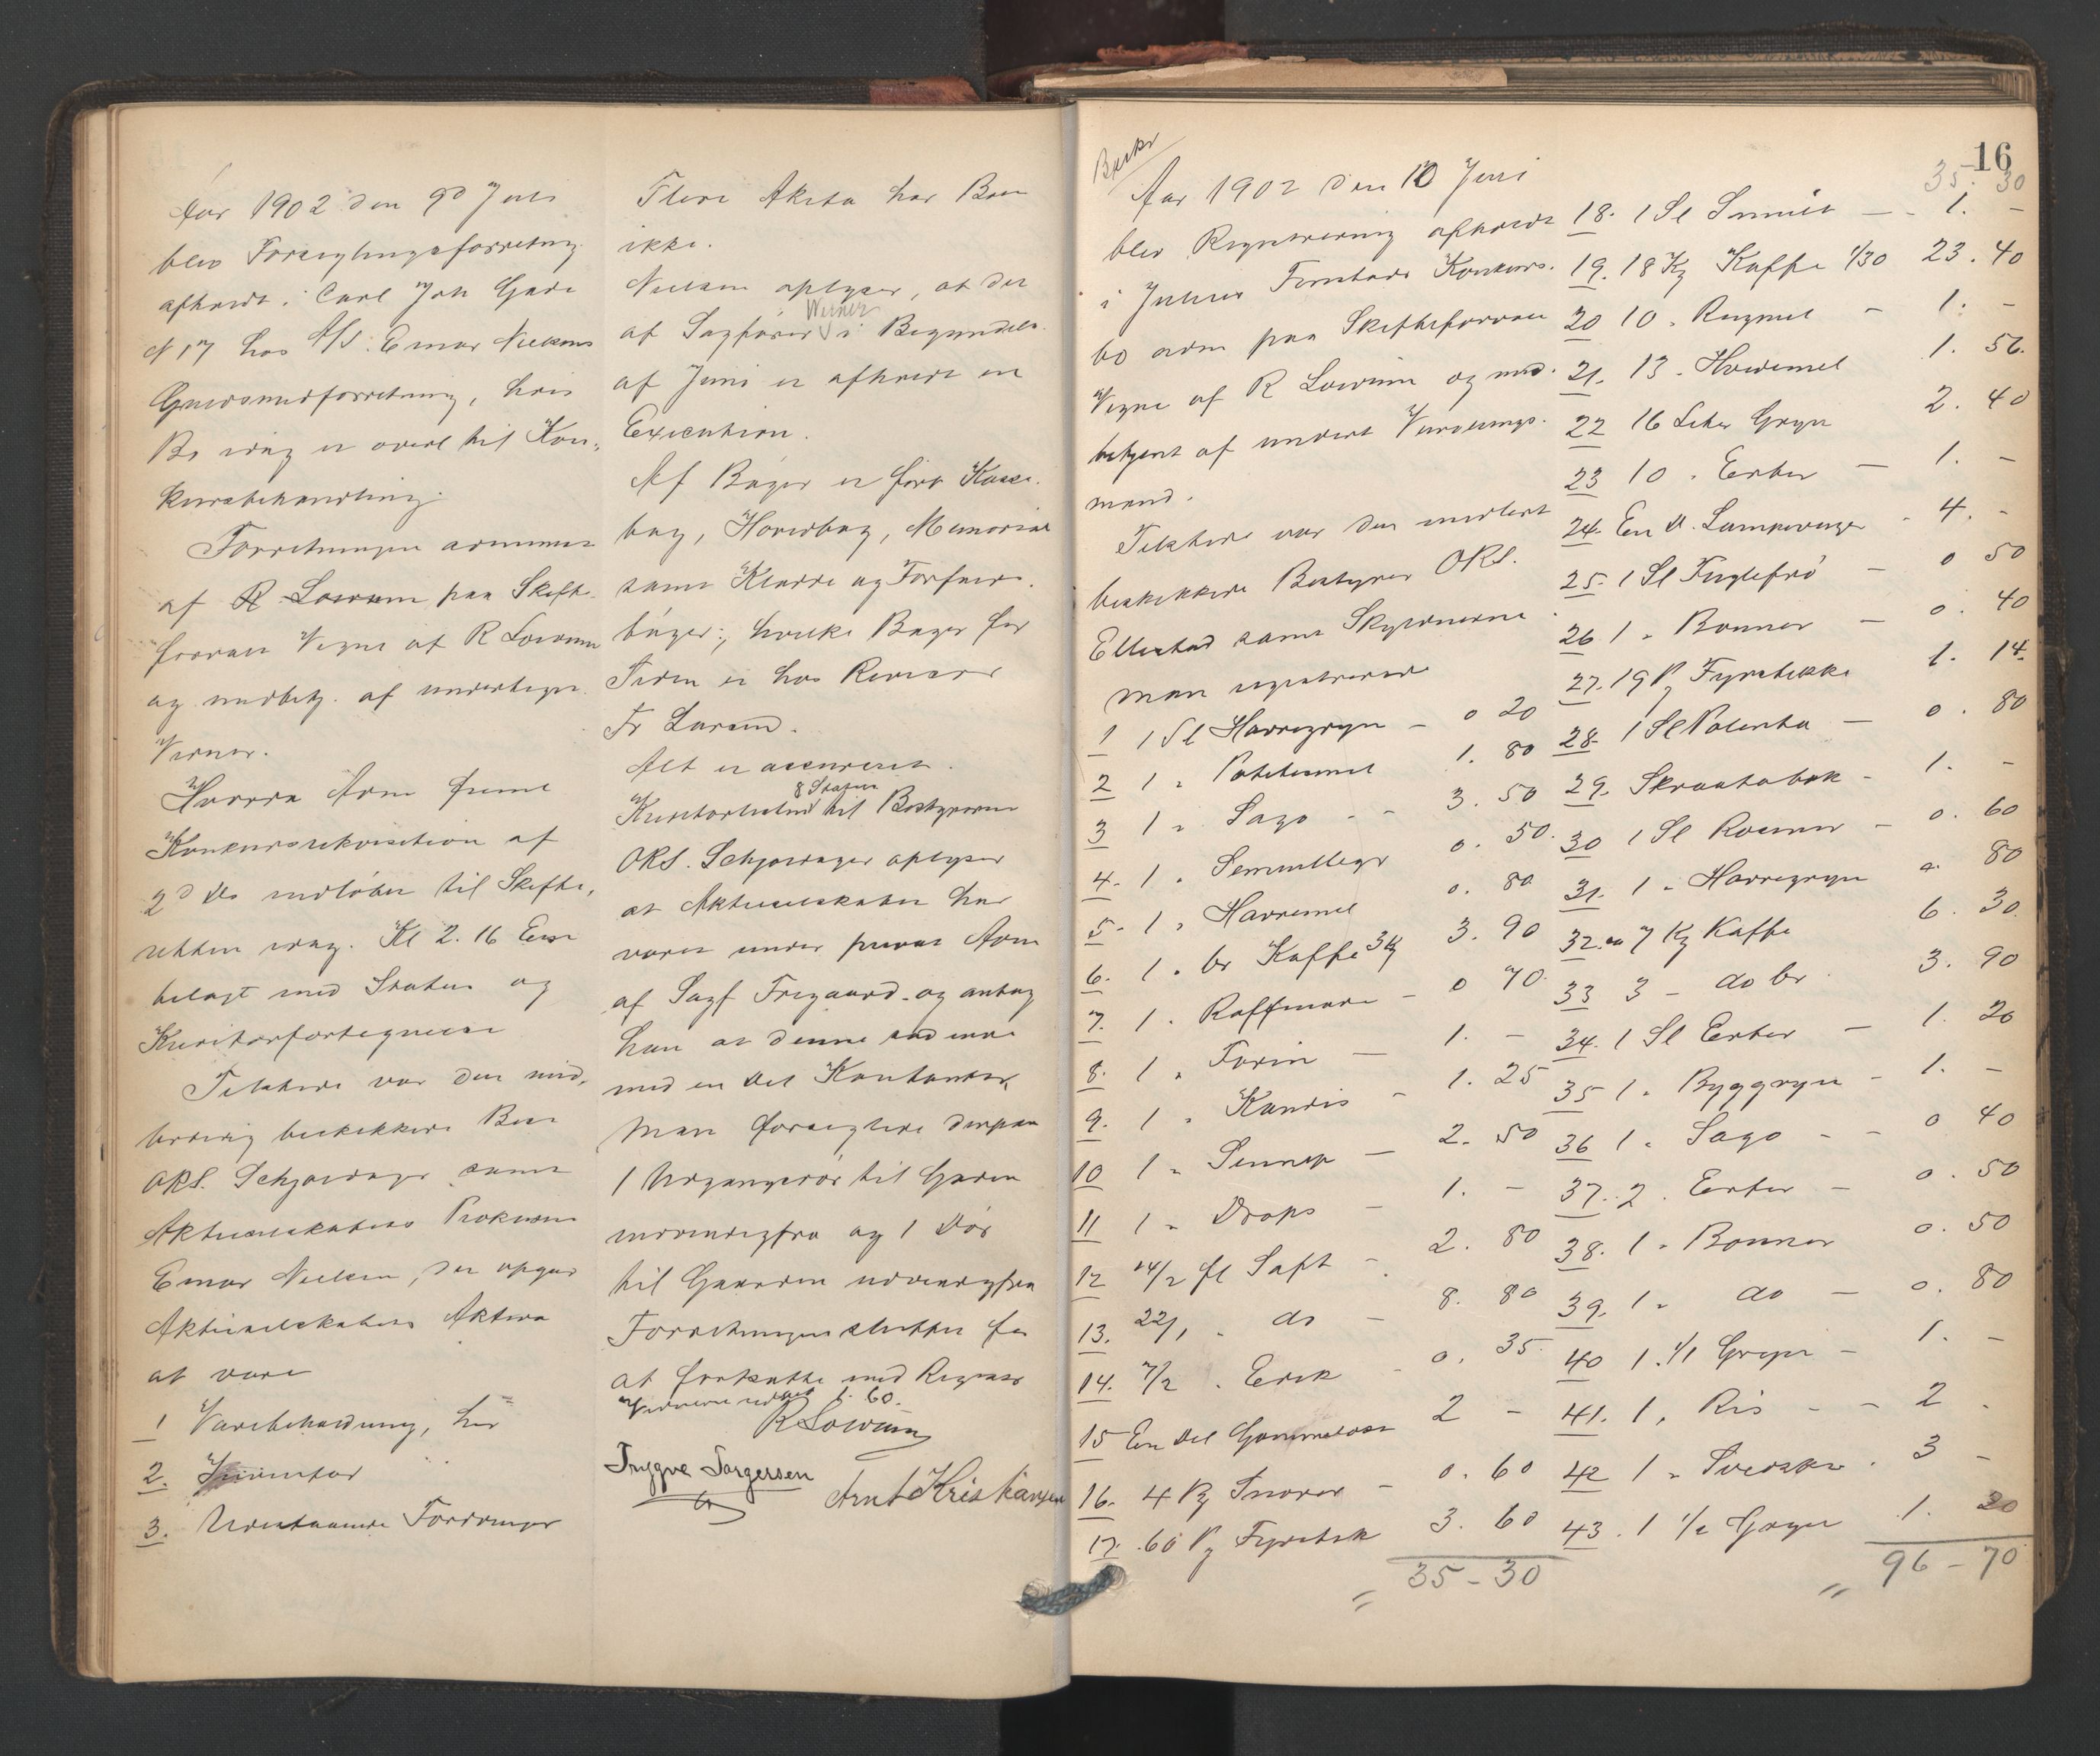 Aar 1902 den 9d Juli
blev Forseglingsforretning
afholdt i Carl Joh Gade
N 17 hos A/S. Einar Nielsens
Guldsmedforretning, hvis
Bo idag er overt til Kon-
kursbehandling.
Forretningen
af R Lowum paa Skifte-
forvan Vegne af R Lowum
og medbetj. af undertegn.
Vidner.
Konkursrekvisition af
2d ds indløben til Skifte-
retten idag. Kl 2.16 Em
bilagt med Status og
Kreditorfortegnelse
Tilstede var den mid-
lertidig beskikkede Best
ORS. Schjoldager samt
Aktieselskabets Prokurist
Einar Nielsen, der opgav
Aktieselskabets Aktiva
at være
1 Varebeholdning, her
2. Inventar
3. Udestaaende Fordringer
Flere Aktiva har Boet
ikke.
Nielsen oplyser, at der
Werner
af Sagfører i Begyndels.
af Juni er afholdt en
Execution.
Af Bøger er ført Kasse-
bog, Hovedbog, Memorial
samt Kladde og Forfalds-
bøger; hvilke Bøger for
Tiden er hos Revisor
Fr Larsen.
Alt er assureret.
8 Status
til Bestyreren
ORS. Schjoldager oplyser
at Aktieselskabet har
været under privat Adm
af Sagf Frigaard og antog
han at denne sad inde
med en Del Kontanter.
Man forseglede derpaa
1 Udgangsdør til Gaden
indvendigfra og 1 Dør
til Gaarden udvendigfra
Forretningen sluttet for
at fortsætte med Registr
Vidnerne udbet 1. 60.
R Lowum
Trygve Torgersen
Arnt Kristiansen
Bjerke
16
Aar 1902 den 10 Juni
blev Registrering afholdt
i Julius Konkurs-
bo adm paa Skifteforvan
Vegne af R Lowum og med-
betjent af undert Vurderings-
mænd.
Tilstede var den midlert
beskikkede Bestyrer ORS.
Ellestad samt Skyldnerne
Man registrerede
1 1 Sl Havregryn - 0 20
2 1 " Potetesmel 1. 80
3 1 " Sago - - 3. 50
4. 1 " Semullegr 0. 50.
5. 1 " Havremel 0. 80
6. 1 " br Kaffe 3 Kg 3. 90
7. 1 " Raffinade - 0 70
8. 1 " Farin - 1. -
9. 1 " Kandis - 1. 25
10 1 " Sennep - 2. 50
11 1 " Drops - 1. -
12 14/2 fl Saft - 2. 80
13. 22/1 " do - 8. 80
14. 7/2 " Edik - 0. 35.
15 En Del Gammelost 2 -
16. 4 Pk Snorer - 0. 60
17. 60 Pk Fyrstik 3. 60
35 - 30
35. 30
18. 1 Sl - 1. -
19. 18 Kg Kaffe 1/30 23. 40
20 10 " Rugmel - 1. -
21. 13 " Hvedemel 1. 56.
22 16 Liter Gryn 2. 40
23 10 " Erter - 1. -
24. En d. Lampevæger - 4. -
25. 1 Sl Fuglefrø - 0 50
26 1 " Bønner - 0. 40
27. 19 Pk Fyrstikke 1. 14.
28. 1 Sl Polenta - 0. 80
29. Skraatobak - 1. -
30 1 Sl Rosiner - 0. 60
31. 1 " Havregryn 0. 80
32. 7 Kg Kaffe 6. 30.
33 3 - do br 3. 90
34. 1 Sl Erter - 1. 20
35 1 " Byggryn - 1. -
36 1 " Sago - - 0 40
37. 2 " Erter - 0. 50
38. 1 " Bønner 0. 50
39. 1 " do - 0. 80
40 1 " 1/1 Gryn - 1. -
41. 1 " Ris - - 2 -
42 1 " Svedske . 3 -
43. 1 1/2 Gryn 1. 20
96 - 70